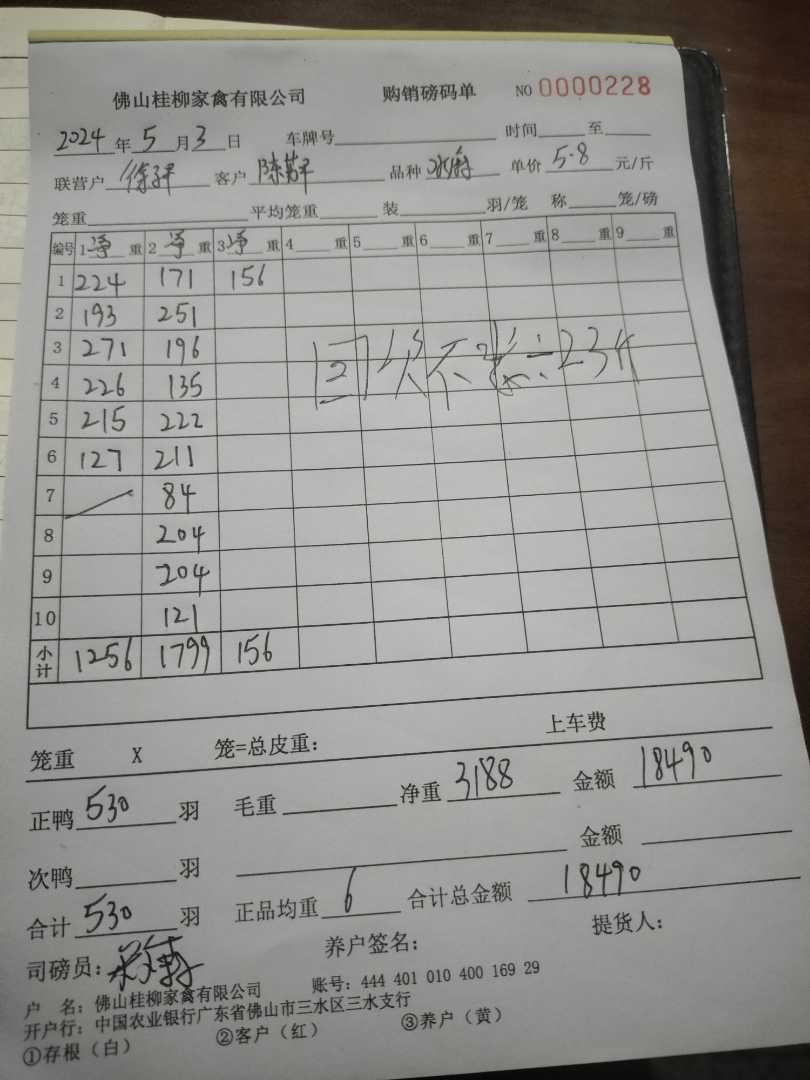 佛山桂柳家禽有限公司 购销磅码单 NO 0000228
2024年5月3日 车牌号 时间 至
联营户 客户 品种 单价 5.8 元/斤
笼重 平均笼重 装 羽/笼 称 笼/磅
编号 1净重 2净重 3净重 4重 5重 6重 7重 8重 9重
1 224 171 156
2 193 251
3 271 196
4 226 135
5 215 222
6 127 211
7 84
8 204
9 204
10 121
小计 1256 1799 156
234
笼重 X 笼=总皮重: 上车费
正鸭 530 羽 毛重 净重 3188 金额 18490
次鸭 羽 金额
合计 530 羽 正品均重 6 合计总金额 18490
司磅员: 养户签名: 提货人:
户 名: 佛山桂柳家禽有限公司 账号: 444 401 010 400 169 29
开户行: 中国农业银行广东省佛山市三水区三水支行
①存根(白) ②客户(红) ③养户(黄)